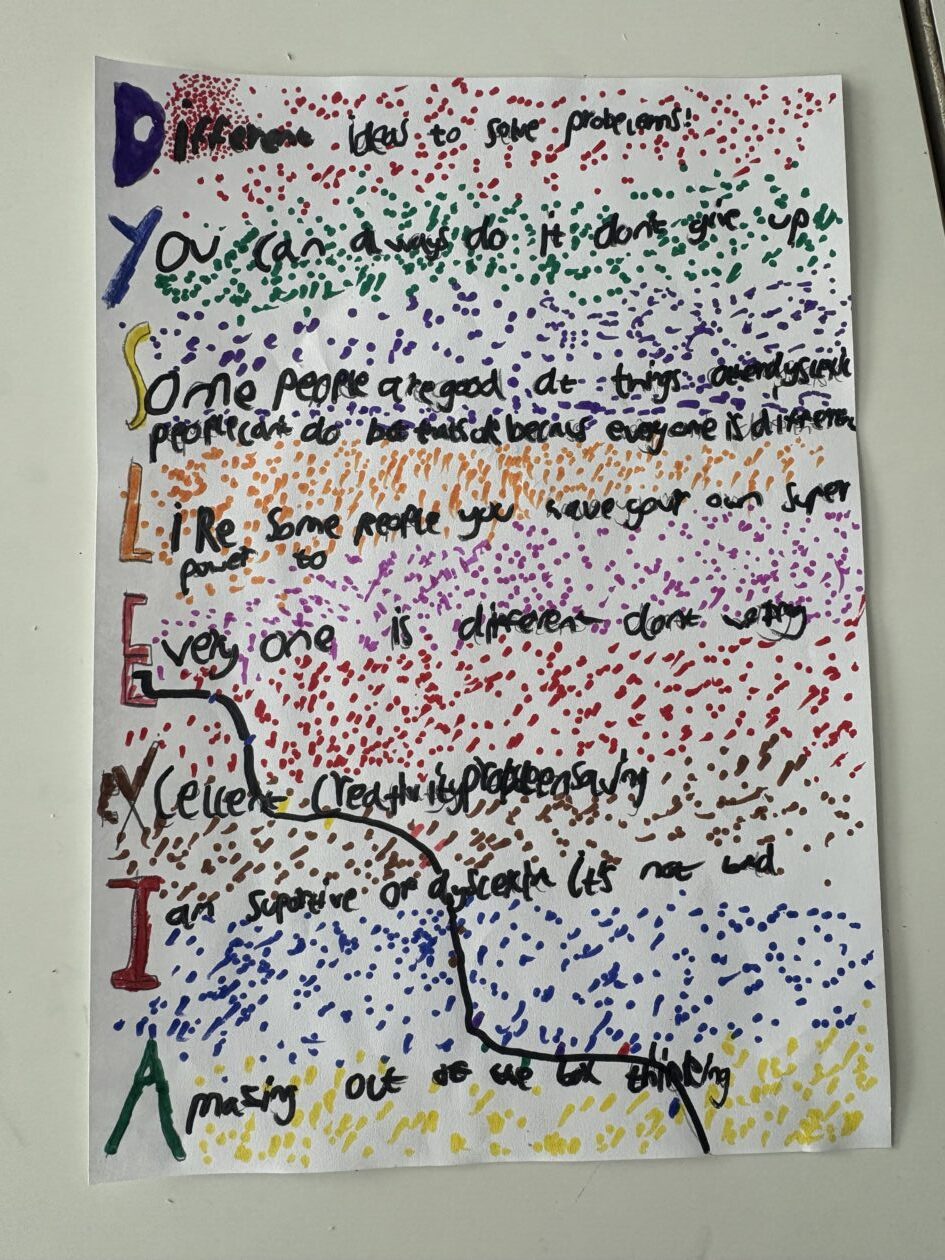 Different ideas to solve probelems!
You can always do it dont give up
Some people are good at things dyslexik
people cant do but thats ok becaus everyone is different
LiRe some people you have your own super
power to
Every one is different dont worry
EXcellent Creativity
I am suportive of dyslexia its not bad
Amazing out of the box thinking